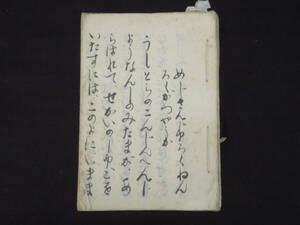 めじさんじゆろくねん
ろくがつやうか
うしとらのこんじんへんじ
ようなんしのみたまが、あ
らはれて、せかいのしゆごを
いたすには このよにいまま